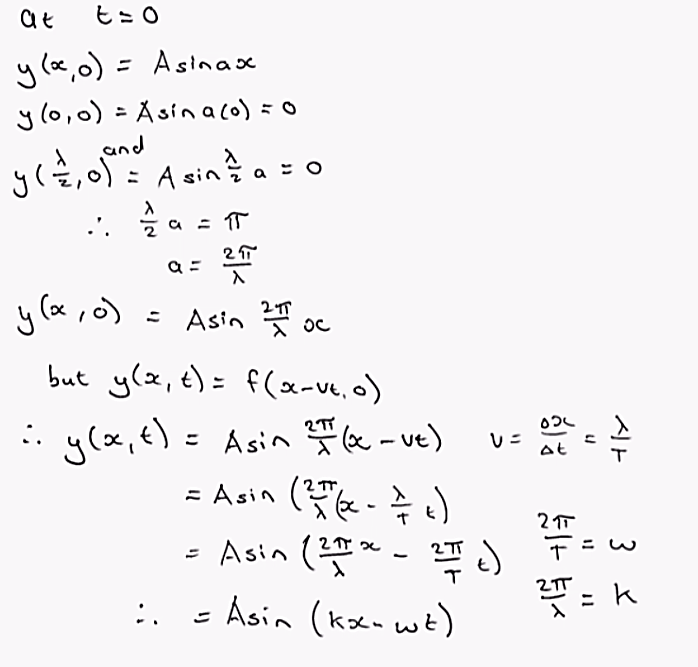 at t=0
y(x,0) = A sin ax
y(0,0) = A sin a(0) = 0
and
y(λ/2,0) = A sin λ/2 a = 0
∴ λ/2 a = π
a = 2π/λ
y(x,0) = A sin 2π/λ x
but y(x,t) = f(x-vt,0)
∴ y(x,t) = A sin 2π/λ (x-vt) v = Δx/Δt = λ/T
= A sin (2π/λ (x - λ/T t)
= A sin (2π/λ x - 2π/T t) 2π/T = w
2π/λ = k
∴ = A sin (kx-wt)